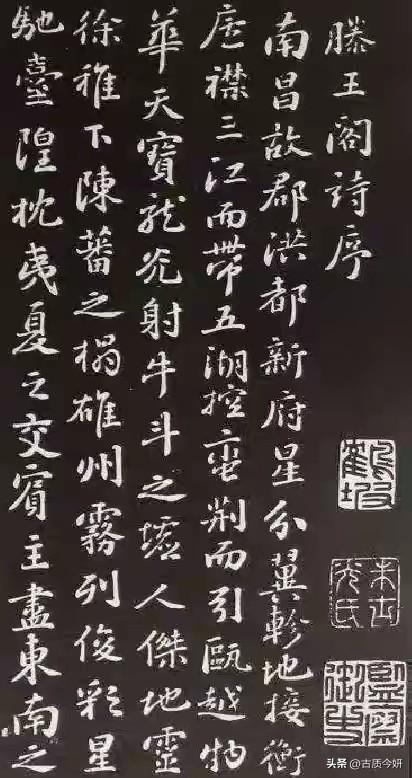 滕王閣詩序
南昌故郡洪都新府星分翼軫地接衡
廬襟三江而帶五湖控蠻荊而引甌越物
華天寶龍光射牛斗之墟人傑地靈
徐稚下陳蕃之榻雄州霧列俊彩星
馳臺隍枕夷夏之交賓主盡東南之
監察御史
头条 @古质今妍